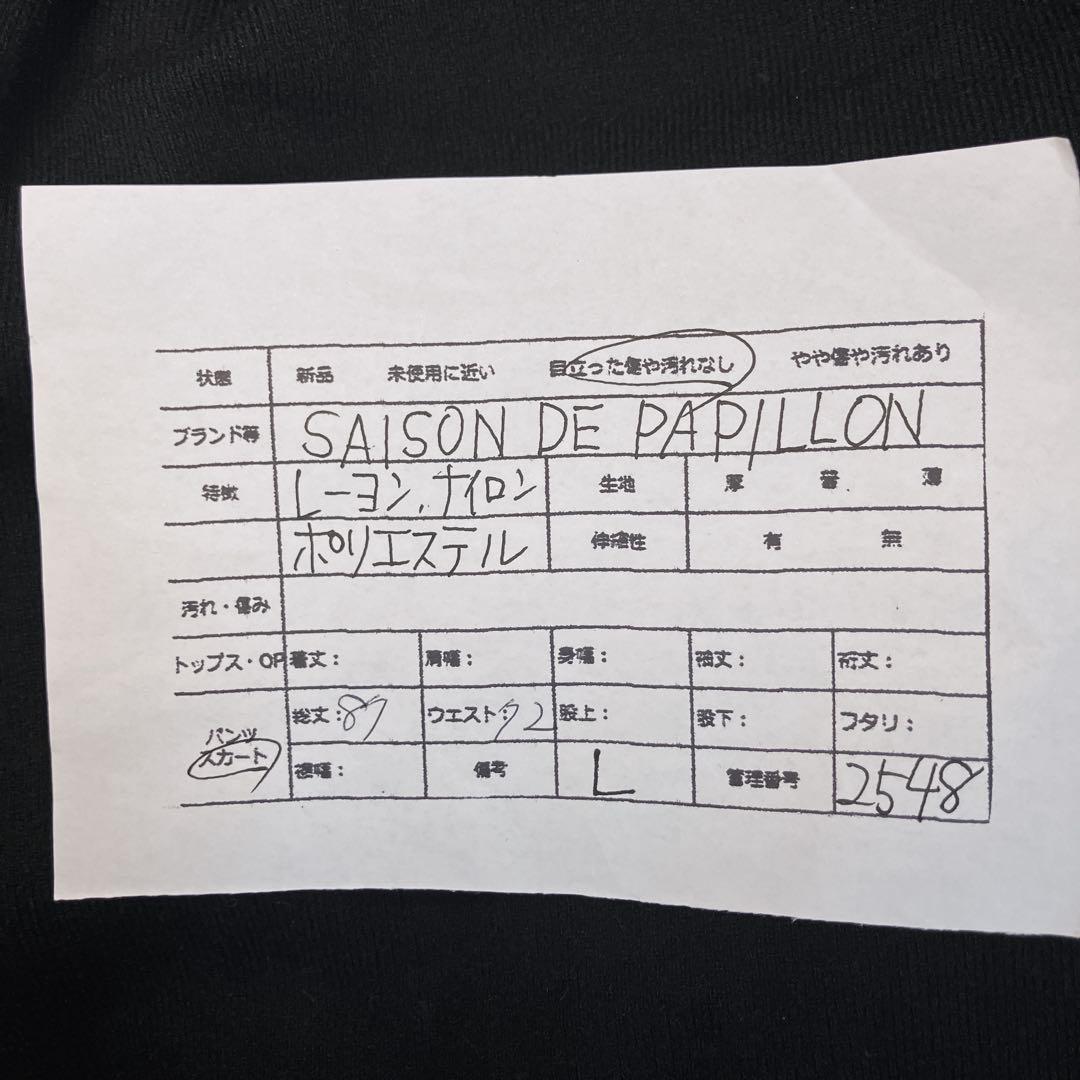 状態 新品 未使用に近い 目立った傷や汚れなし やや傷や汚れあり
ブランド等 SAISON DE PAPILLON
特徴 レーヨン、ナイロン 生地 厚 普 薄
ポリエステル 伸縮性 有 無
汚れ・傷み
トップス・OP 着丈： 肩幅： 身幅： 袖丈： 裄丈：
パンツ 総丈：87 ウエスト：72 股上： 股下： ワタリ：
スカート 裾幅： 備考 L 管理番号 2548